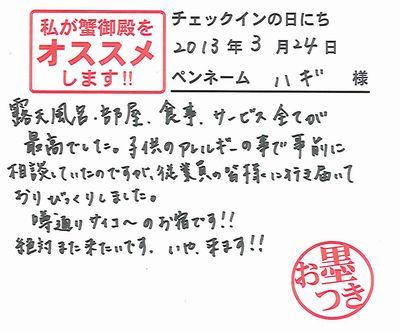 私が蟹御殿を
オススメ
します!!
チェックインの日にち
2013年3月24日
ペンネーム ハギ 様
露天風呂・部屋、食事、サービス全てが
最高でした。子供のアレルギーの事で事前に
相談していたのですが、従業員の皆様に行き届いて
おりびっくりしました。
噂通りサイコ〜のお宿です!!
絶対また来たいです、いや、来ます!!
お墨つき